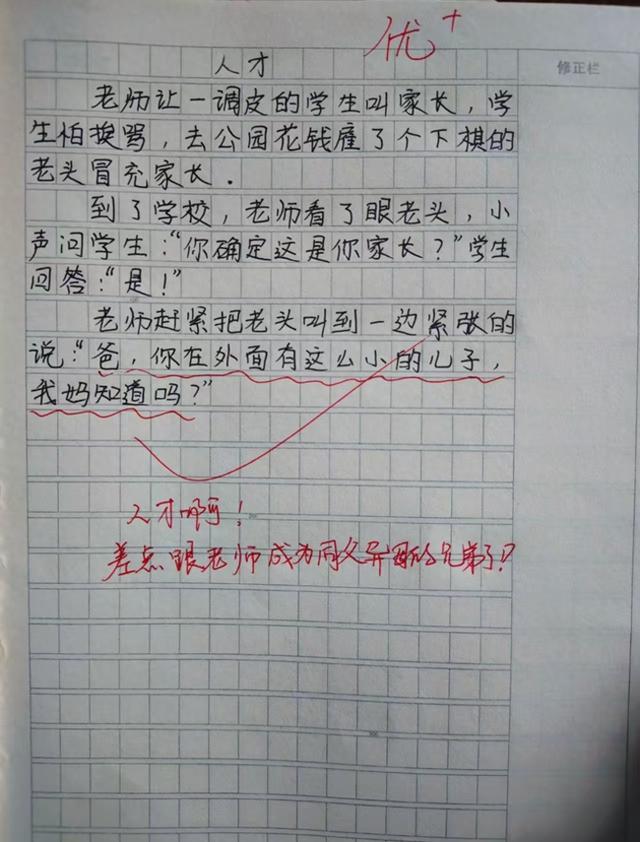 优+
修正栏
人才
老师让一调皮的学生叫家长，学
生怕挨骂，去公园花钱雇了个下棋的
老头冒充家长.
到了学校，老师看了眼老头，小
声问学生：“你确定这是你家长？”学生
回答：“是！”
老师赶紧把老头叫到一边紧张的
说：“爸，你在外面有这么小的儿子，
我妈知道吗？”
人才啊！
差点跟老师成为同父异母的兄弟了？